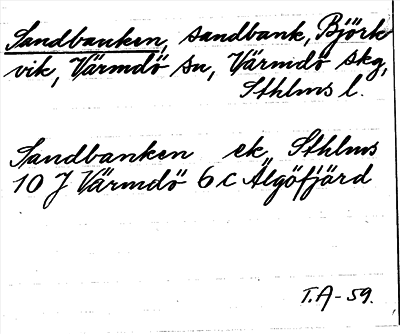 Sandbanken, sandbank, Björk
vik, Värmdö sn, Värmdö skg,
Sthlms l.
Sandbanken ek, Sthlms
10 J Värmdö 6 c Älgöfjärd
T.A-59.